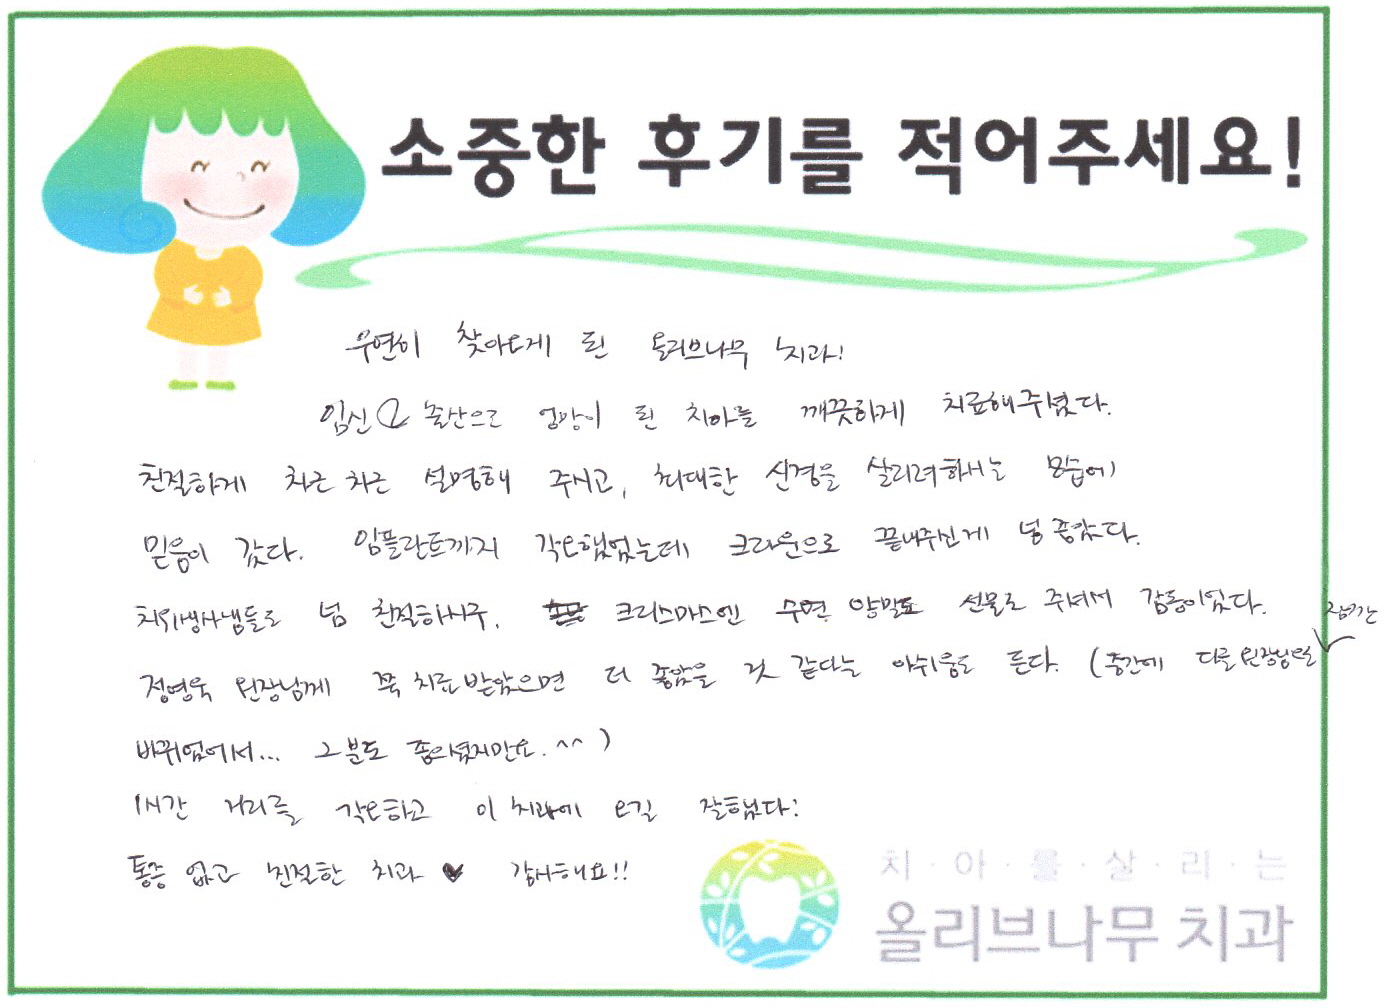 소중한 후기를 적어주세요!
우연히 찾아오게 된 올리브나무 치과!
임신 & 출산으로 엉망이 된 치아를 깨끗하게 치료해주셨다.
친절하게 차근차근 설명해 주시고, 최대한 신경을 살리려하시는 모습에
믿음이 갔다. 임플란트까지 각오했었는데 크라운으로 끝내주신게 넘 좋았다.
치위생사샘들도 넘 친절하시구, 크리스마스엔 수면 양말도 선물로 주셔서 감동이었다.
정영욱 원장님께 쭉 치료 받았으면 더 좋았을 것 같다는 아쉬움도 든다. (중간에 다른 원장님으로 잠깐
바뀌었어서... 그분도 좋으셨지만요.^^)
1시간 거리를 각오하고 이 치과에 오길 잘했다!
통증 없고 친절한 치과 ♥ 감사해요!!
치·아·를·살·리·는
올리브나무 치과